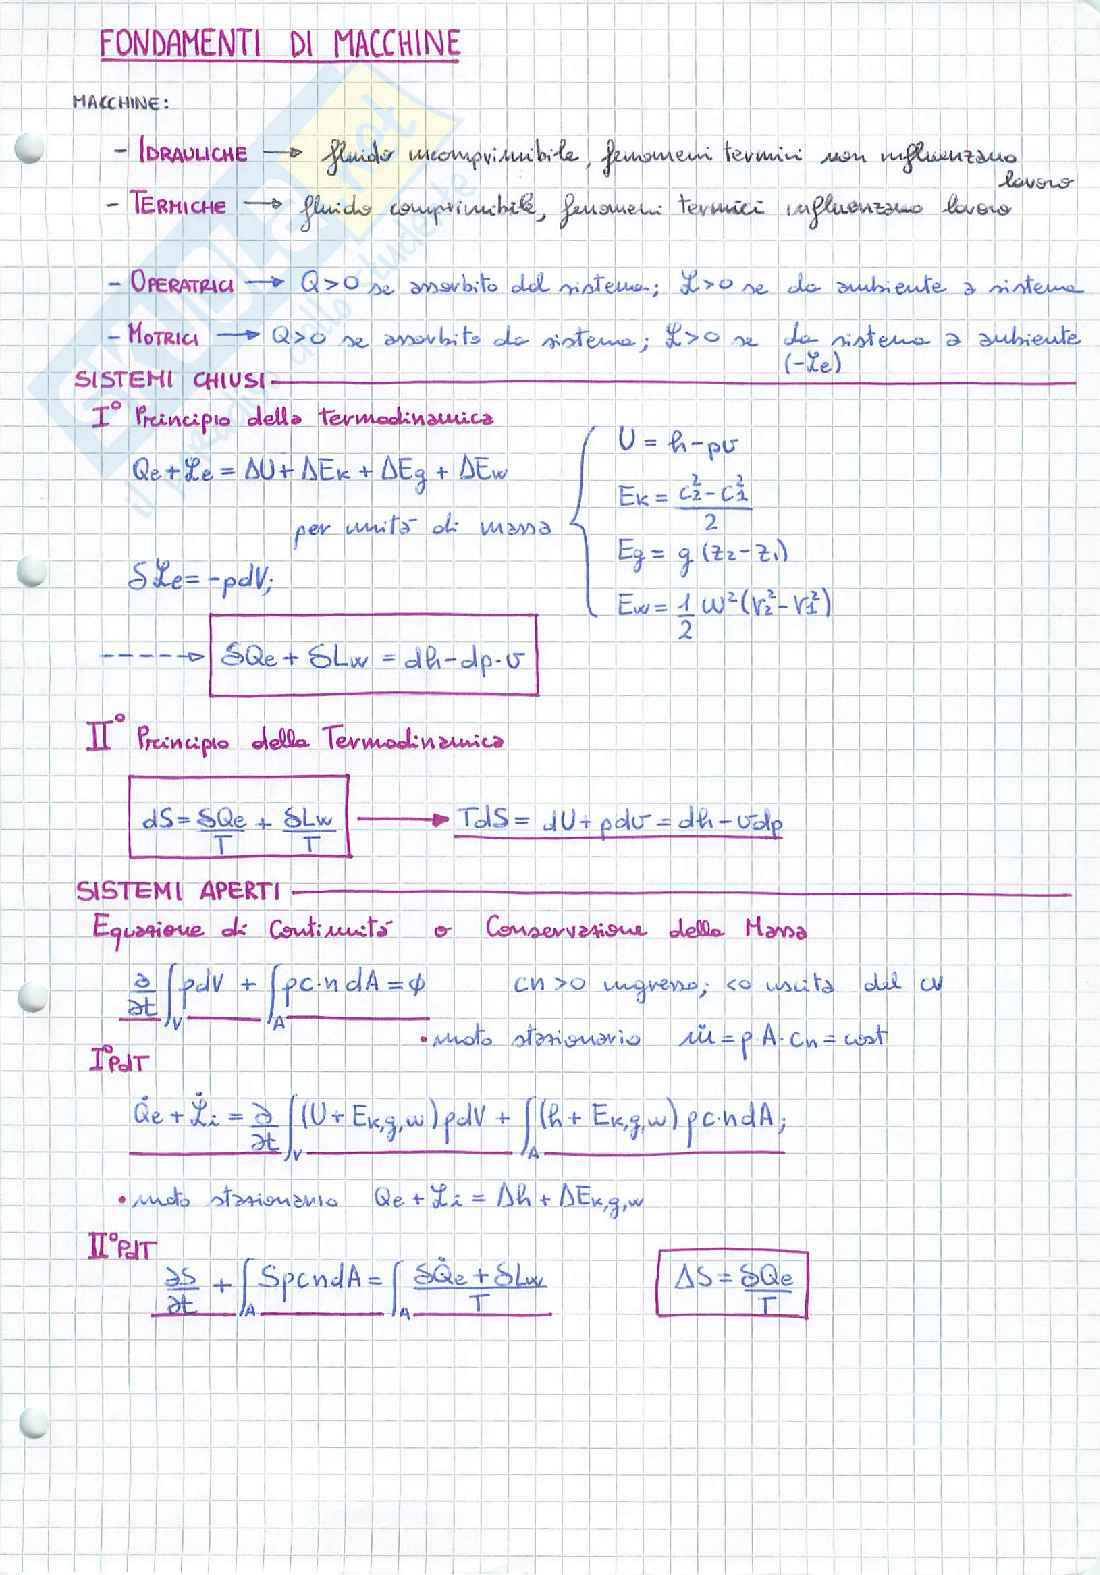 FONDAMENTI DI MACCHINE
MACCHINE:
- IDRAULICHE → fluido incomprimibile, fenomeni termici non influenzano
lavoro
- TERMICHE → fluido comprimibile, fenomeni termici influenzano lavoro
- OPERATRICI → Q>0 se assorbito dal sistema; ℒ>0 se da ambiente a sistema
- MOTRICI → Q>0 se assorbito da sistema; ℒ>0 se da sistema a ambiente
(-ℒe)
SISTEMI CHIUSI
I° Principio della termodinamica
Qe + ℒe = ΔU + ΔEk + ΔEg + ΔEw
per unità di massa
U = h - pv
Ek = (c₂² - c₁²)/2
Eg = g (z₂ - z₁)
Ew = 1/2 ω² (r₂² - r₁²)
δℒe = -pdV;
----> δQe + δLw = dh - dp·v
II° Principio della Termodinamica
dS = δQe/T + δLw/T → TdS = dU + pdv = dh - vdp
SISTEMI APERTI
Equazione di Continuità o Conservazione della Massa
∂/∂t ∫V ρdV + ∫A ρc·n dA = ϕ cn>0 ingresso; <0 uscita del cv
• moto stazionario ṁ = ρ·A·cn = cost
I°PdT
Q̇e + ℒ̇i = ∂/∂t ∫V (U + Ek,g,w) ρdV + ∫A (h + Ek,g,w) ρc·ndA;
• moto stazionario Qe + ℒi = Δh + ΔEk,g,w
II°PdT
∂S/∂t + ∫A SρcndA = ∫A (δQ̇e + δLw)/T ΔS = δQe/T
SKUOLA.net
il paradiso dello studente